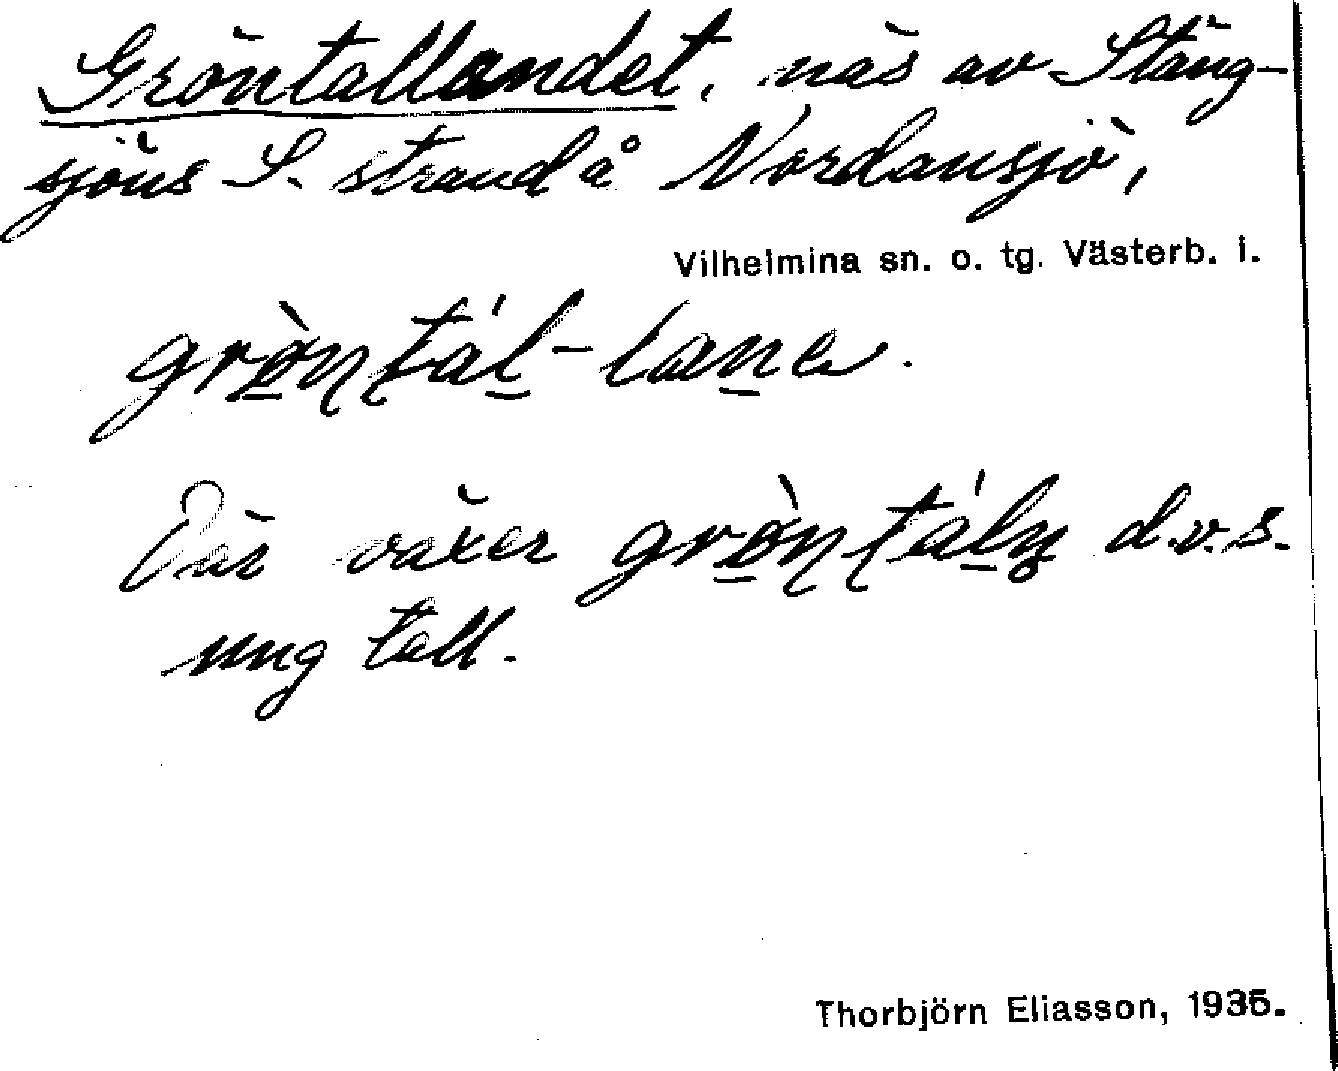 Gröntallandet, näs av Stäng-
sjöns S. strand å Nordansjö,
Vilhelmina sn. o. tg. Västerb. l.
grø̀ntál-lane.
Där växer grø̀ntáln d.v.s.
ung tall.
Thorbjörn Eliasson, 1935.